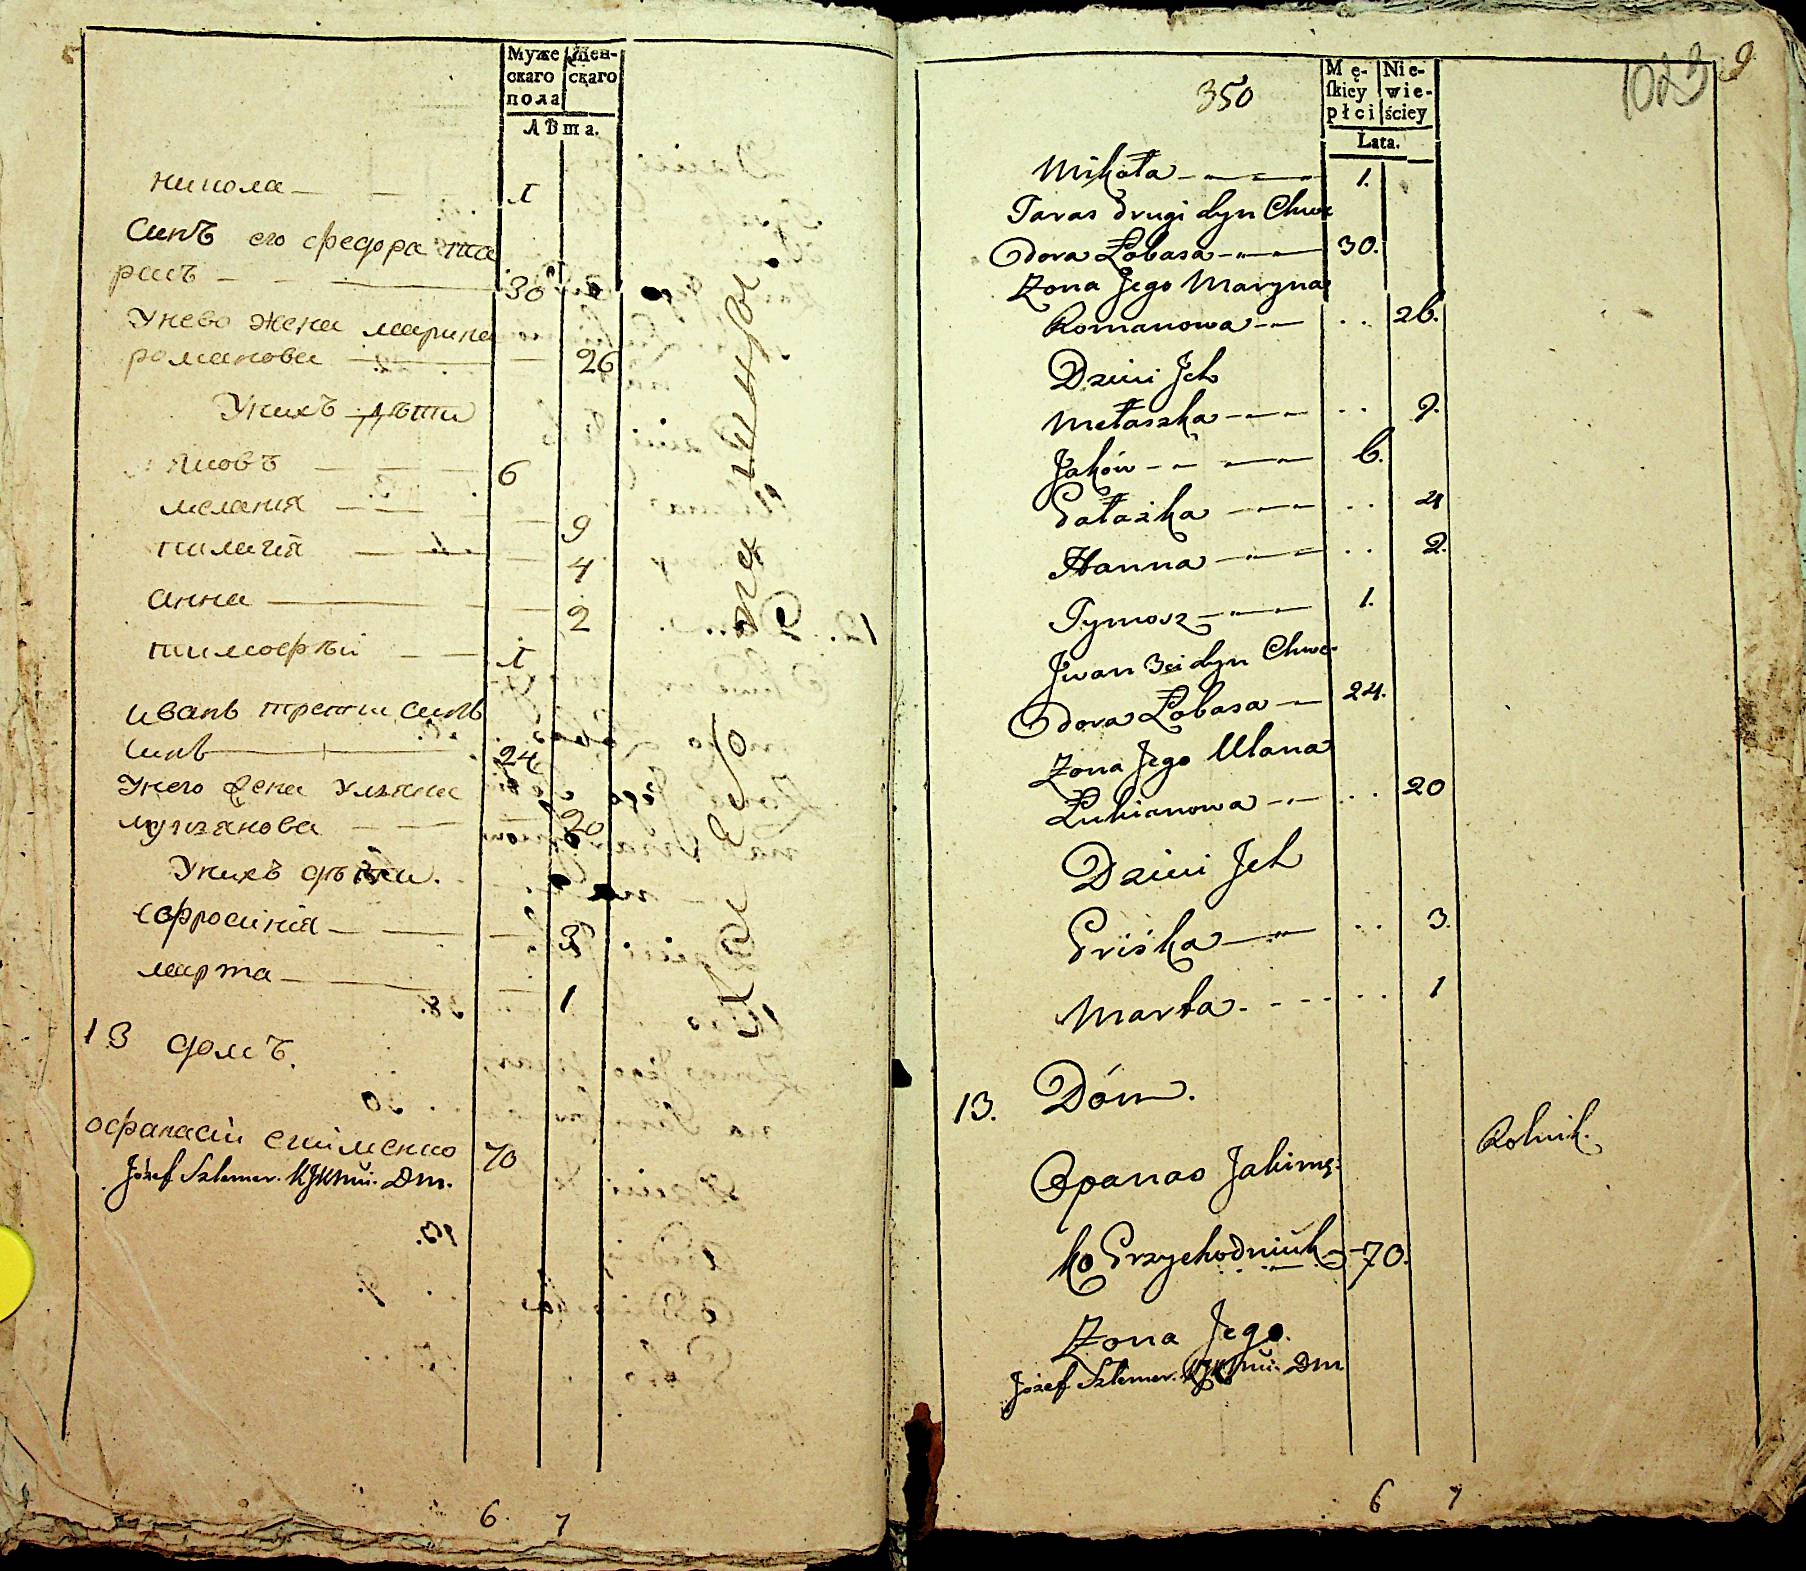 Муже Жен-
скаго скаго
пола
ЛѢта.
никола 1
Синъ его федора та
расъ 30
Унево жена марина
романова 26
Унихъ дѣти
яковъ 6
мелания 9
пилагия 4
анна 2
тимофѣй 1
иванъ трети синъ
синъ 24
Унего жена Уляна
лукянова 20
Унихъ дѣти.
Ефросиния 3
марта 1
13 домъ.
офанасiй 70
Józef Szlemer. Dm.
6 7
350
Mę- Nie-
skiey wie-
płci ściey
Lata.
9
Mikoła 1.
Taras drugi Syn Chwe
dora Łobasa 30.
Żona Jego Maryna
Romanowa .. 26.
Dzieci Jch
Mełaszka .. 9.
Jaków 6.
Pałażka .. 4
Hanna .. 2.
Tymosz 1.
Jwan 3ci Syn Chwe-
dora Łobasa 24.
Żona Jego Ulana
Łukianowa .. 20
Dzieci Jch
Priśka .. 3.
Marta .. 1
13. Dóm.
Opanas Jakimę: Rolnik.
ko Przychodniuk 70.
Żona Jego.
Józef Szlemer. Dm
6 7